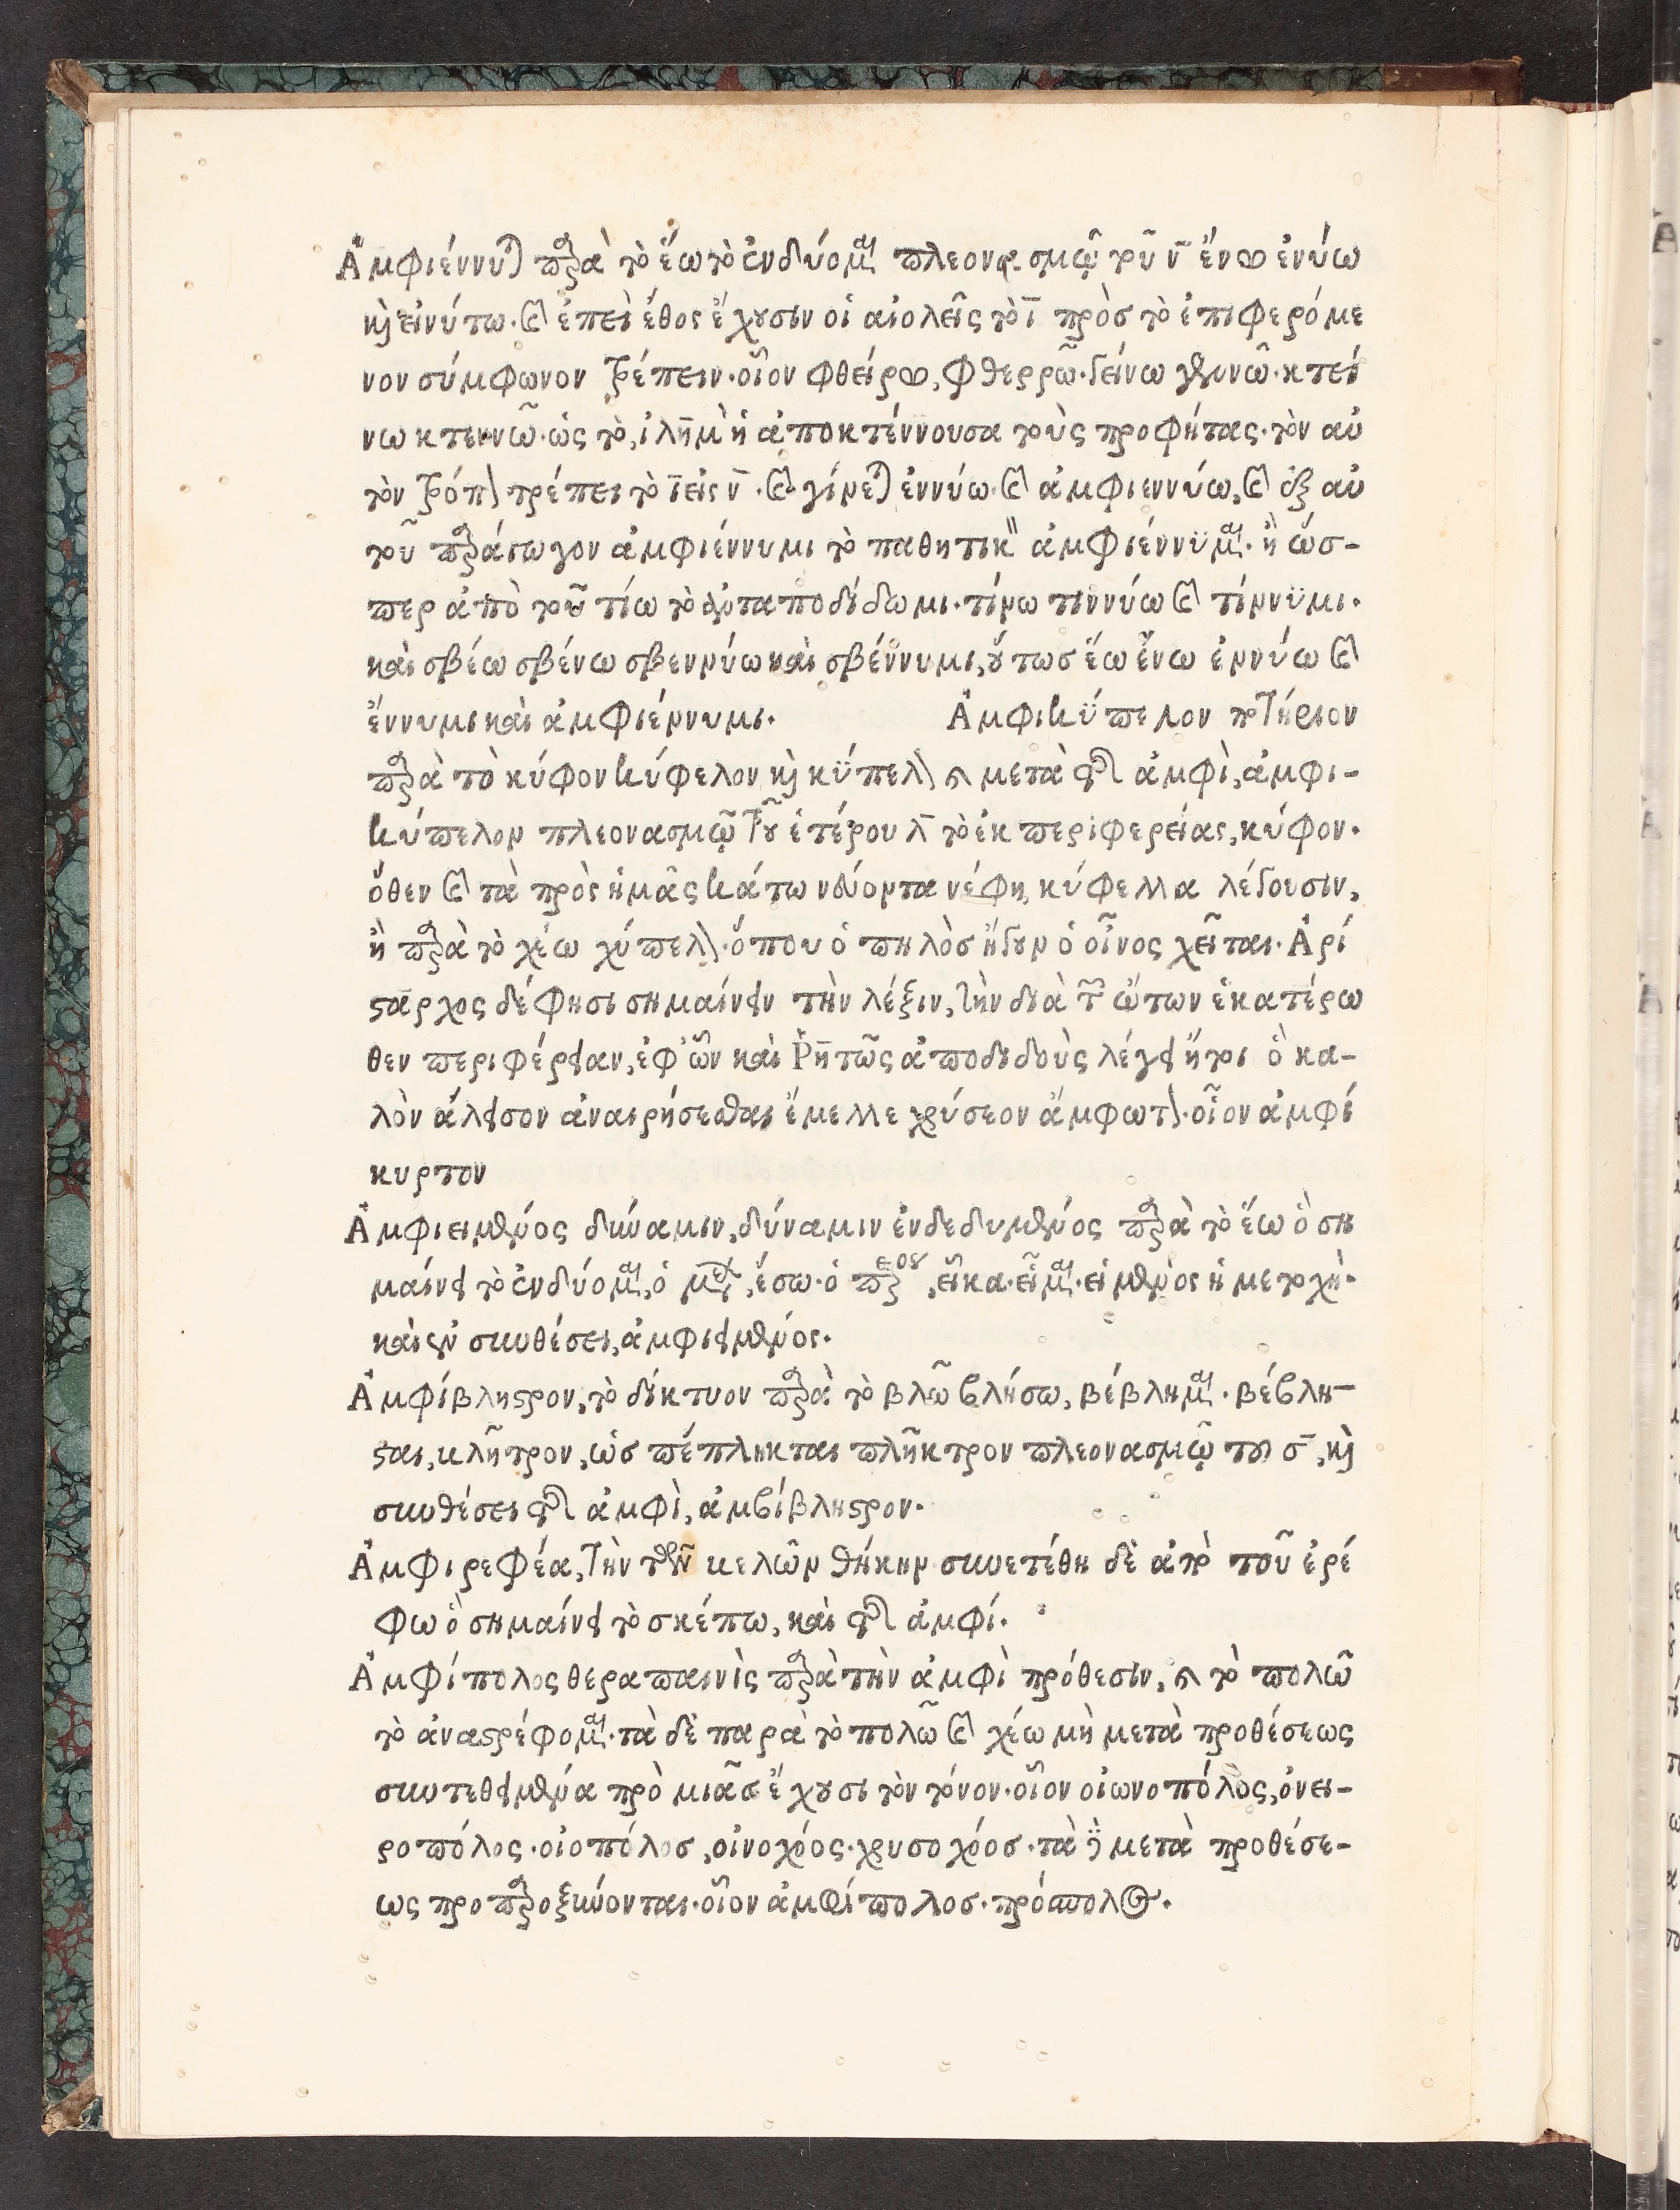 Ἀμφιέννυται παρὰ τὸ ἕω τὸ ἐνδύομαι πλεονασμῷ τοῦ ν̄ ἕνω ἑνύω
καὶ εἱνύτω. καὶ ἐπεὶ ἔθος ἔχουσιν οἱ αἰολεῖς τὸ ῑ πρὸσ τὸ ἐπιφερόμε
νον σύμφωνον τρέπειν. οἷον φθείρω, φθερρῶ. δείνω κτεί
νω κτεννῶ. ὡς τὸ, ἡ ἀποκτέννουσα τοὺς προφήτας. τὸν αὐ
τὸν τρόπον τρέπει τὸ ῑ εἰς ν̄. καὶ γίνεται ἑννύω. καὶ ἀμφιεννύω, καὶ ἐξ αὐ
τοῦ παράγωγον ἀμφιέννυμι τὸ παθητικὸν ἀμφιέννϋμαι. ἢ ὥσ-
περ ἀπὸ τοῦ τίω τὸ ἀνταποδίδωμι. τίνω τιννύω καὶ τίννϋμι.
καὶ σβέω σβένω σβεννύω καὶ σβέννυμι, οὕτωσ ἕω ἕνω ἑννύω καὶ
ἕννυμι καὶ ἀμφιέννυμι. Ἀμφικϋπελον ποτήριον
παρὰ τὸ κύφον κύφελον καὶ κϋπελον καὶ μετὰ τῆς ἀμφὶ, ἀμφι-
κύπελον πλεονασμῷ τοῦ ἑτέρου λ̄ τὸ ἐκ περιφερείας, κύφον.
ὅθεν καὶ τὰ πρὸς ἡμᾶς κάτω νεύοντα νέφη, κύφελλα λέγουσιν,
ἢ παρὰ τὸ χέω χύπελον. ὅπου ὁ πηλὸσ ἤγουν ὁ οἶνος χεῖται. Ἀρί
σταρχος δέ φησι σημαίνειν τὴν λέξιν, τὴν διὰ τῶν ὤτων ἑκατέρω
θεν περιφέρειαν, ἐφ' ὧν καὶ ῥητῶς ἀποδιδοὺς λέγει ἤτοι ὃ κα-
λὸν ἄλεισον ἀναιρήσεσθαι ἔμελλε χρύσεον ἄμφωτον. οἷον ἀμφί
κυρτον
Ἀμφιειμένος δύναμιν, δύναμιν ἐνδεδυμένος παρὰ τὸ ἕω ὃ ση
μαίνει τὸ ἐνδύομαι, ὁ μέλλων, ἕσω. ὁ παρακείμενος, εἷκα. εἷμαι. εἱμένος ἡ μετοχὴ.
καὶ ἐν συνθέσει, ἀμφιειμένος.
Ἀμφίβληστρον, τὸ δίκτυον παρὰ τὸ βλῶ βλήσω, βέβλημαι. βέβλη-
σται, κλῆτρον, ὡσ πέπληκται πλῆκτρον πλεονασμῷ τοῦ σ̄, καὶ
συνθέσει τῆς ἀμφὶ, ἀμβίβληστρον.
Ἀμφιρεφέα, τὴν τῶν κελῶν θήκην συνετέθη δὲ ἀπὸ τοῦ ἐρέ
φω ὃ σημαίνει τὸ σκέπω, καὶ τῆς ἀμφί.
Ἀμφίπολος θεραπαινὶς παρὰ τὴν ἀμφὶ πρόθεσιν, καὶ τὸ πολῶ
τὸ ἀναστρέφομαι. τὰ δὲ παρὰ τὸ πολῶ καὶ χέω μὴ μετὰ προθέσεως
συντεθειμένα πρὸ μιᾶσ ἔχουσι τὸν τόνον. οἷον οἰωνοπόλος, ὀνει-
ροπόλος. οἰοπόλοσ, οἰνοχόος. χρυσοχόοσ. τὰ δὲ μετὰ προθέσε-
ως προπαροξύνονται. οἷον ἀμφίπολοσ. πρόσπολος.